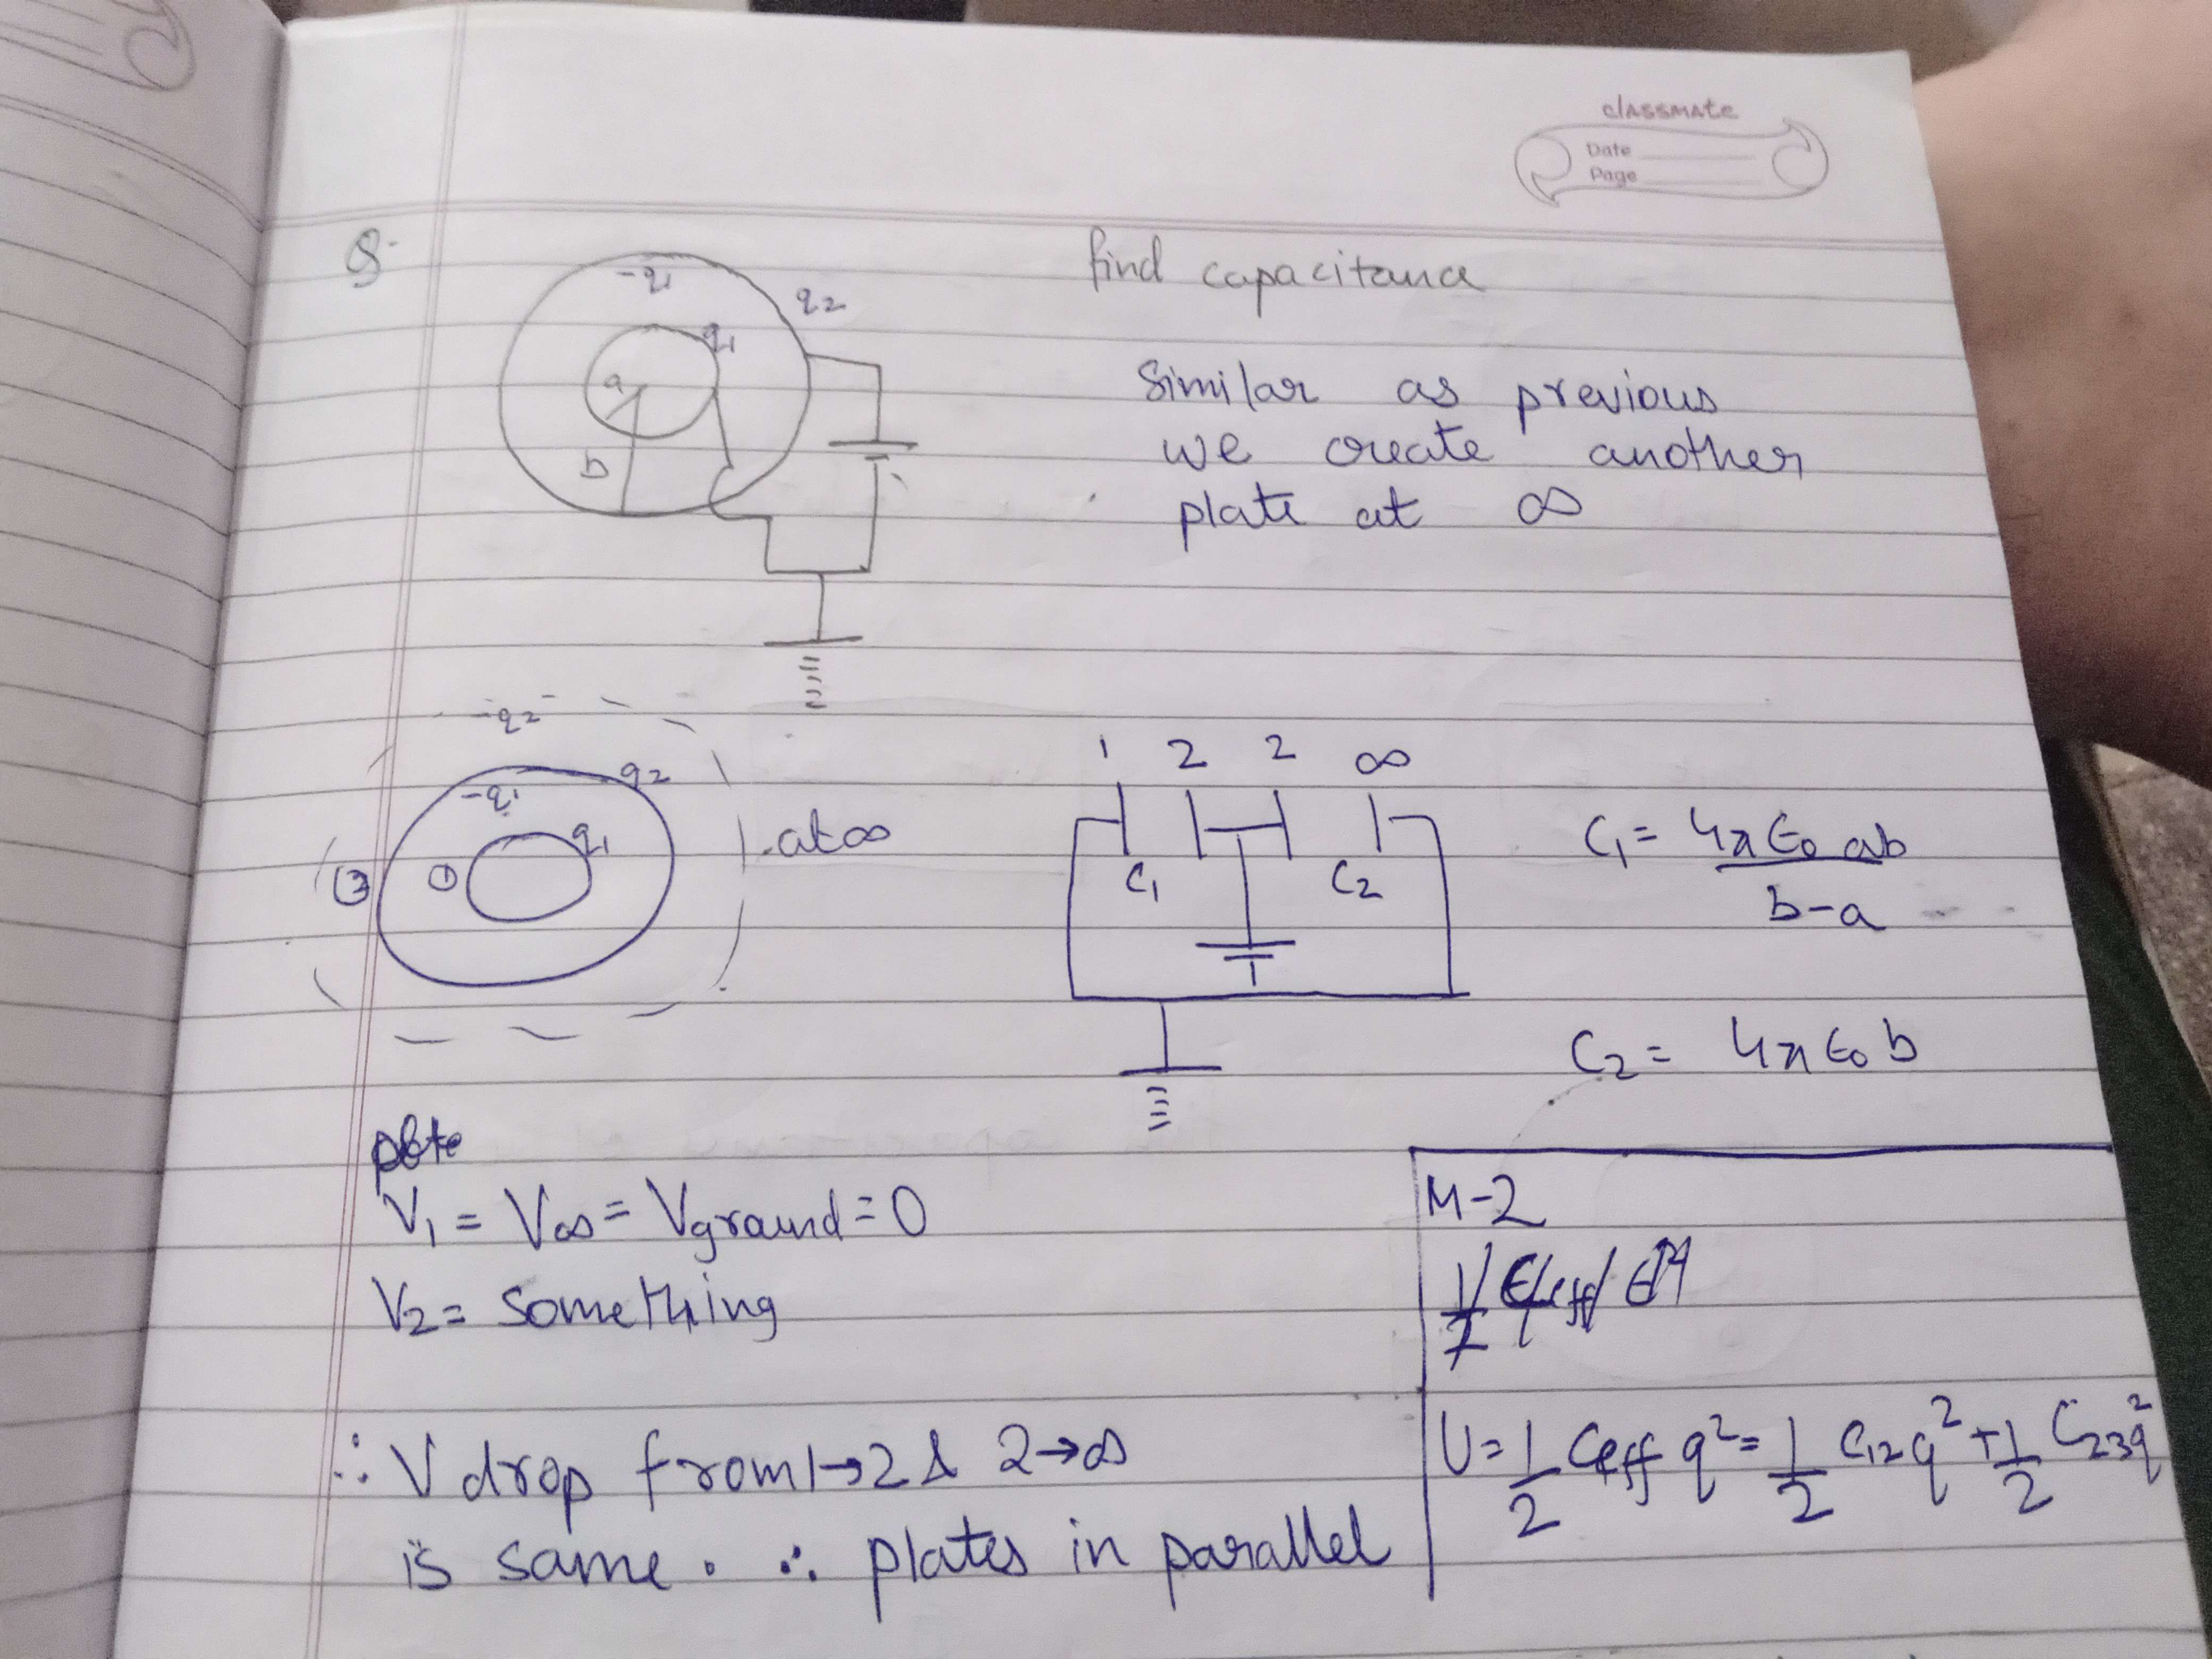 classmate
Date
Page
Q.
find capacitance
-q₁
q₂
q₁
a
b
Similar as previous
we create another
plate at ∞
-q₂
q₂
-q₁
q₁
②
①
at ∞
1 2 2 ∞
C₁ C₂
C₁ = 4πε₀ab
b-a
C₂ = 4πε₀b
V₁ = V∞ = Vground = 0
V₂ = something
∴ V drop from 1→2 & 2→∞
is same. ∴ plates in parallel
M-2
U = 1/2 Ceff q² = 1/2 C₁₂q² + 1/2 C₂₃q²